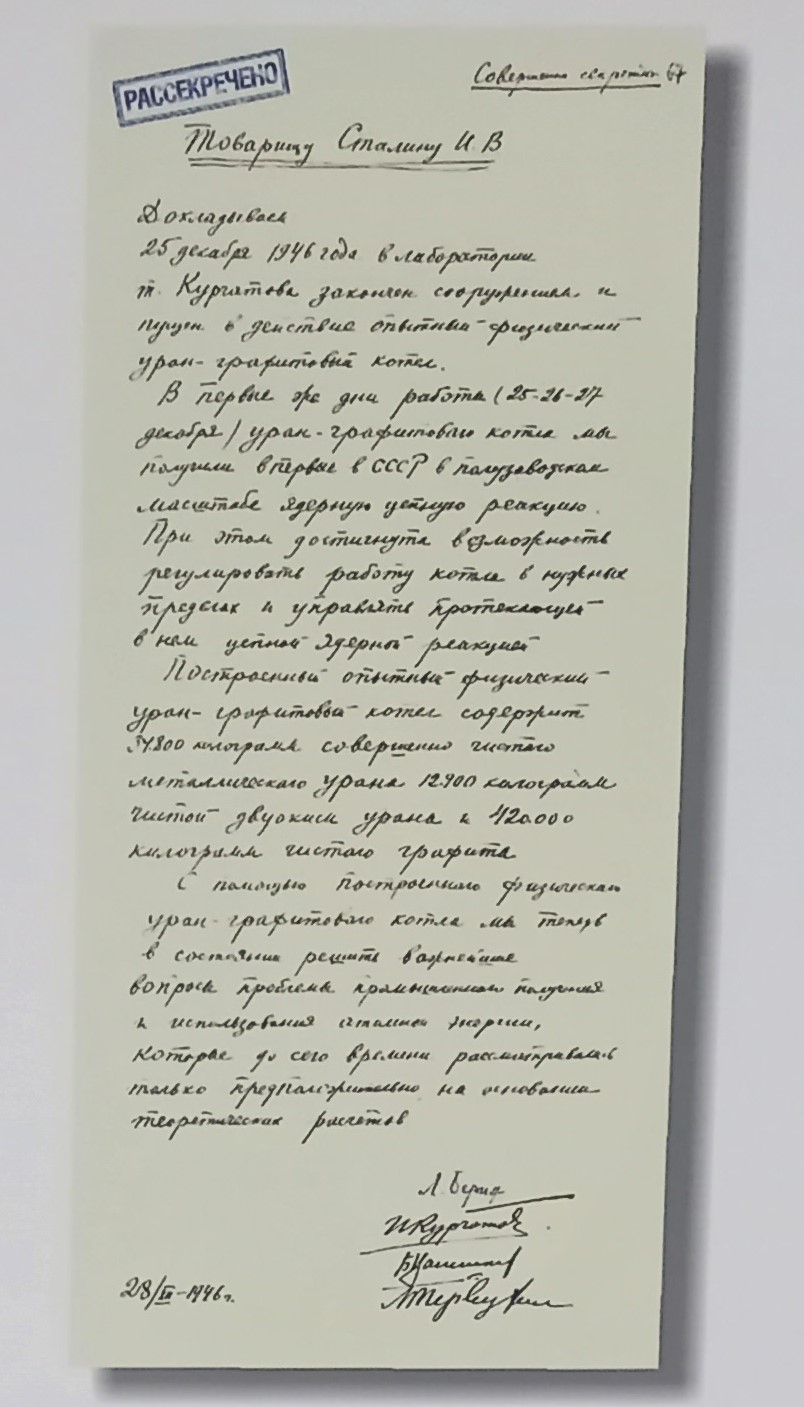 РАССЕКРЕЧЕНО
Совершенно секретно
Товарищу Сталину И. В
Докладываем
25 декабря 1946 года в лаборатории
т. Курчатова закончен сооружением и
пущен в действие опытный физический
уран-графитовый котел.
В первые же дни работы (25-26-27
декабря) уран-графитового котла мы
получили впервые в СССР в полузаводском
масштабе ядерную цепную реакцию.
При этом достигнута возможность
регулировать работу котла в нужных
пределах и управлять протекающей
в нем цепной ядерной реакцией
Построенный опытный физический
уран-графитовый котел содержит
34800 килограмм совершенно чистого
металлического урана 12900 килограмм
чистой двуокиси урана и 420.000
килограмм чистого графита
С помощью построенного физического
уран-графитового котла мы теперь
в состоянии решить важнейшие
вопросы проблемы промышленного получения
и использования атомной энергии,
которые до сего времени рассматривались
только предположительно на основании
теоретических расчетов
Л. Берия
И Курчатов
Б Ванников
М Первухин
28/XII-1946 г.